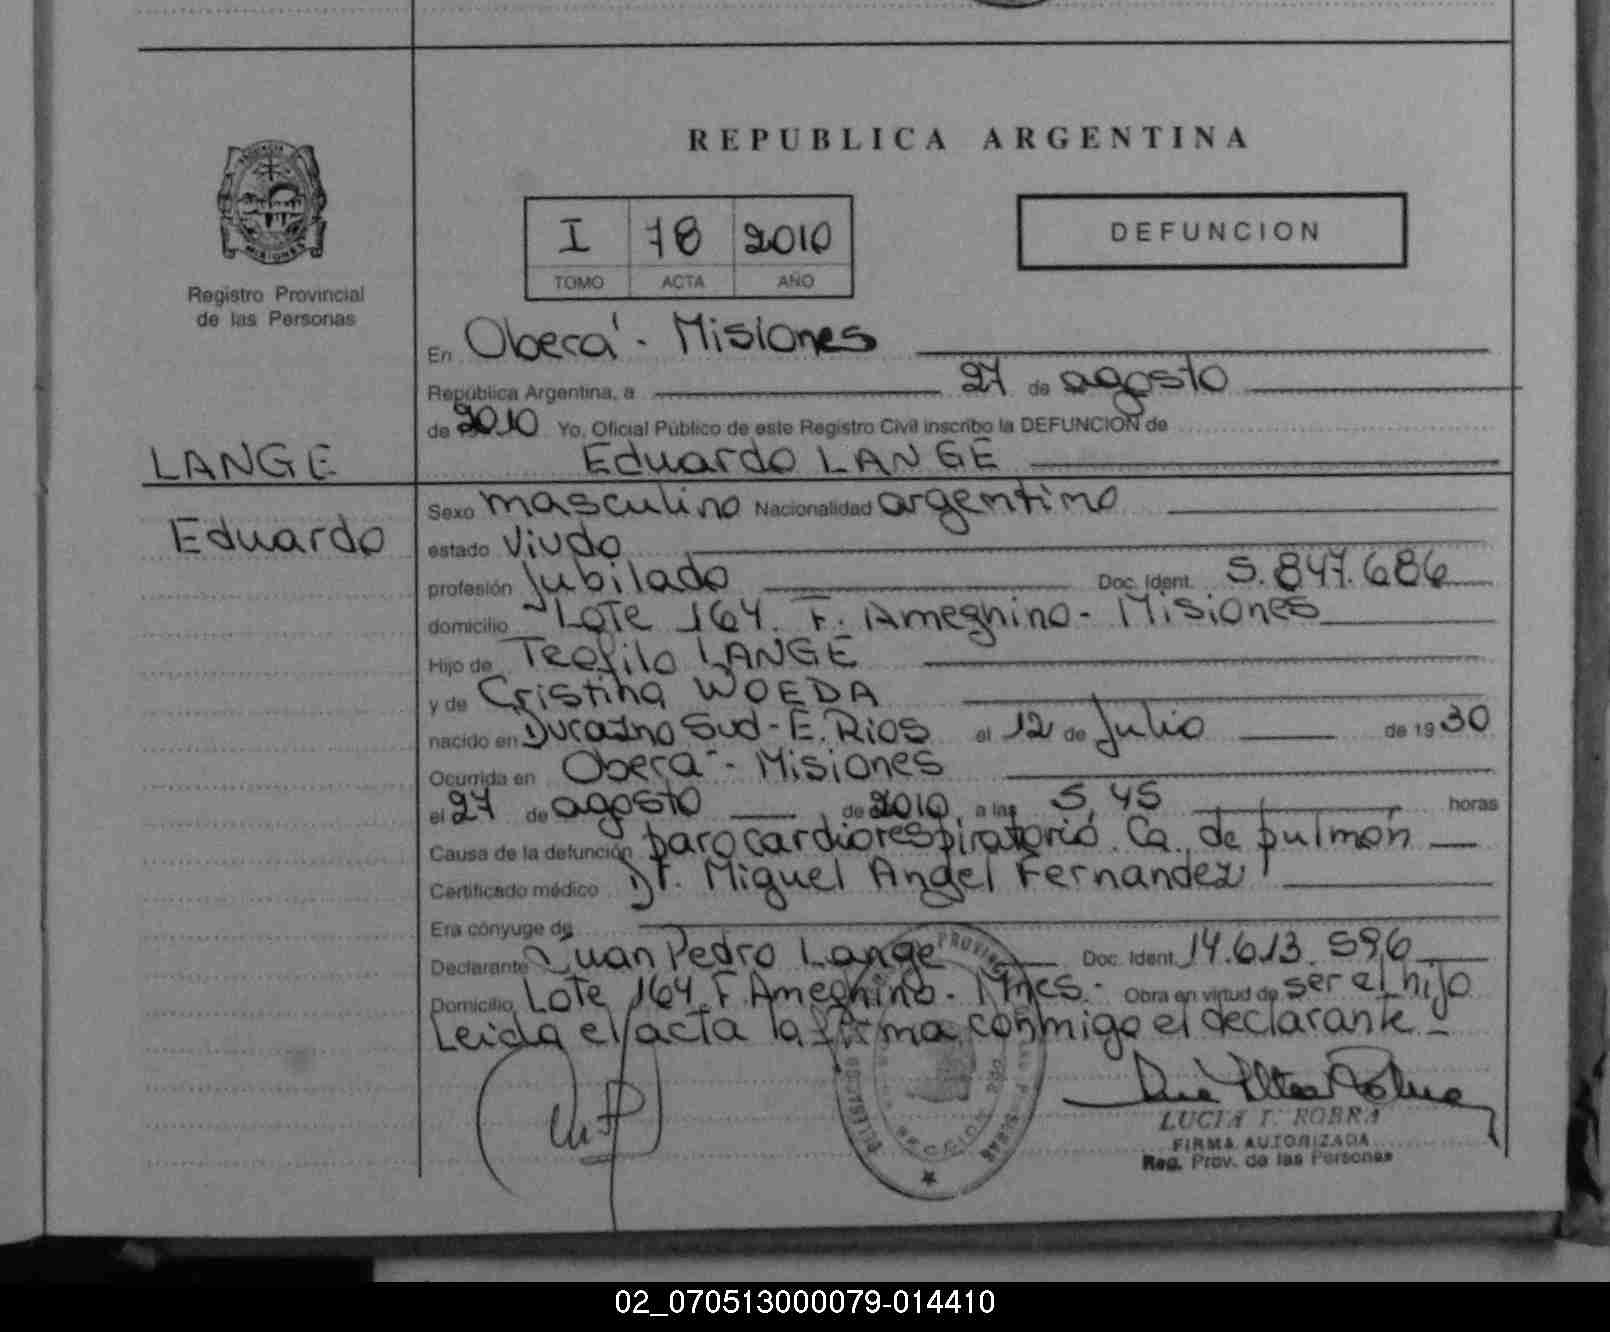 REPUBLICA ARGENTINA
MISIONES
Registro Provincial
de las Personas
I 78 2010
TOMO ACTA AÑO
DEFUNCION
En Oberá - Misiones
República Argentina, a 27 de agosto
de 2010 Yo, Oficial Público de este Registro Civil inscribo la DEFUNCION de
LANGE
Eduardo LANGE
Eduardo
Sexo masculino Nacionalidad argentino
estado viudo
profesión jubilado Doc. Ident. 5.847.686
domicilio Lote 164. F. Ameghino - Misiones
Hijo de Teofilo LANGE
y de Cristina WOEDA
nacido en Durazno Sud - E. Rios el 12 de Julio de 1930
Ocurrida en Oberá - Misiones
el 27 de agosto de 2010 a las 5,45 horas
Causa de la defunción paro cardiorespiratorio. Ca. de pulmon
Certificado médico Dr. Miguel Angel Fernandez
Era cónyuge de
Declarante Juan Pedro Lange Doc. Ident. 14.613.596
Domicilio Lote 164 F. Ameghino - Mnes. - Obra en virtud de ser el hijo
Leida el acta la firma conmigo el declarante -
LUCIA I. ROBRA
FIRMA AUTORIZADA
Reg. Prov. de las Personas
02_070513000079-014410